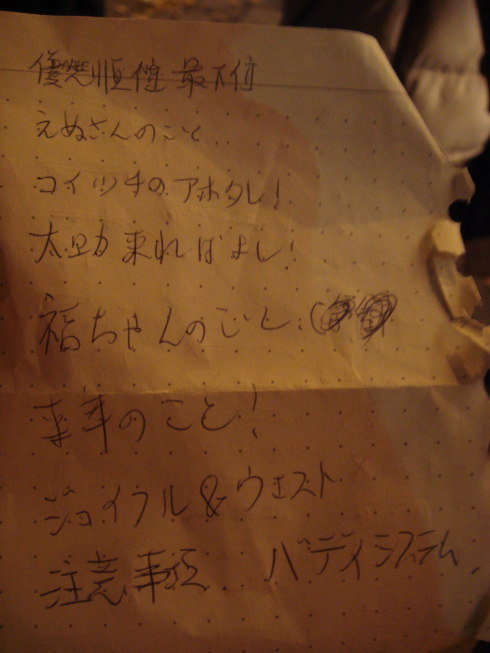 優先順位 最下位
えぬさんのこと
コイツチのアホタレ!
太助来ればよし!
福ちゃんのこと:
来年のこと!
ジョイフル&ウエスト
注意事項 バディシステム